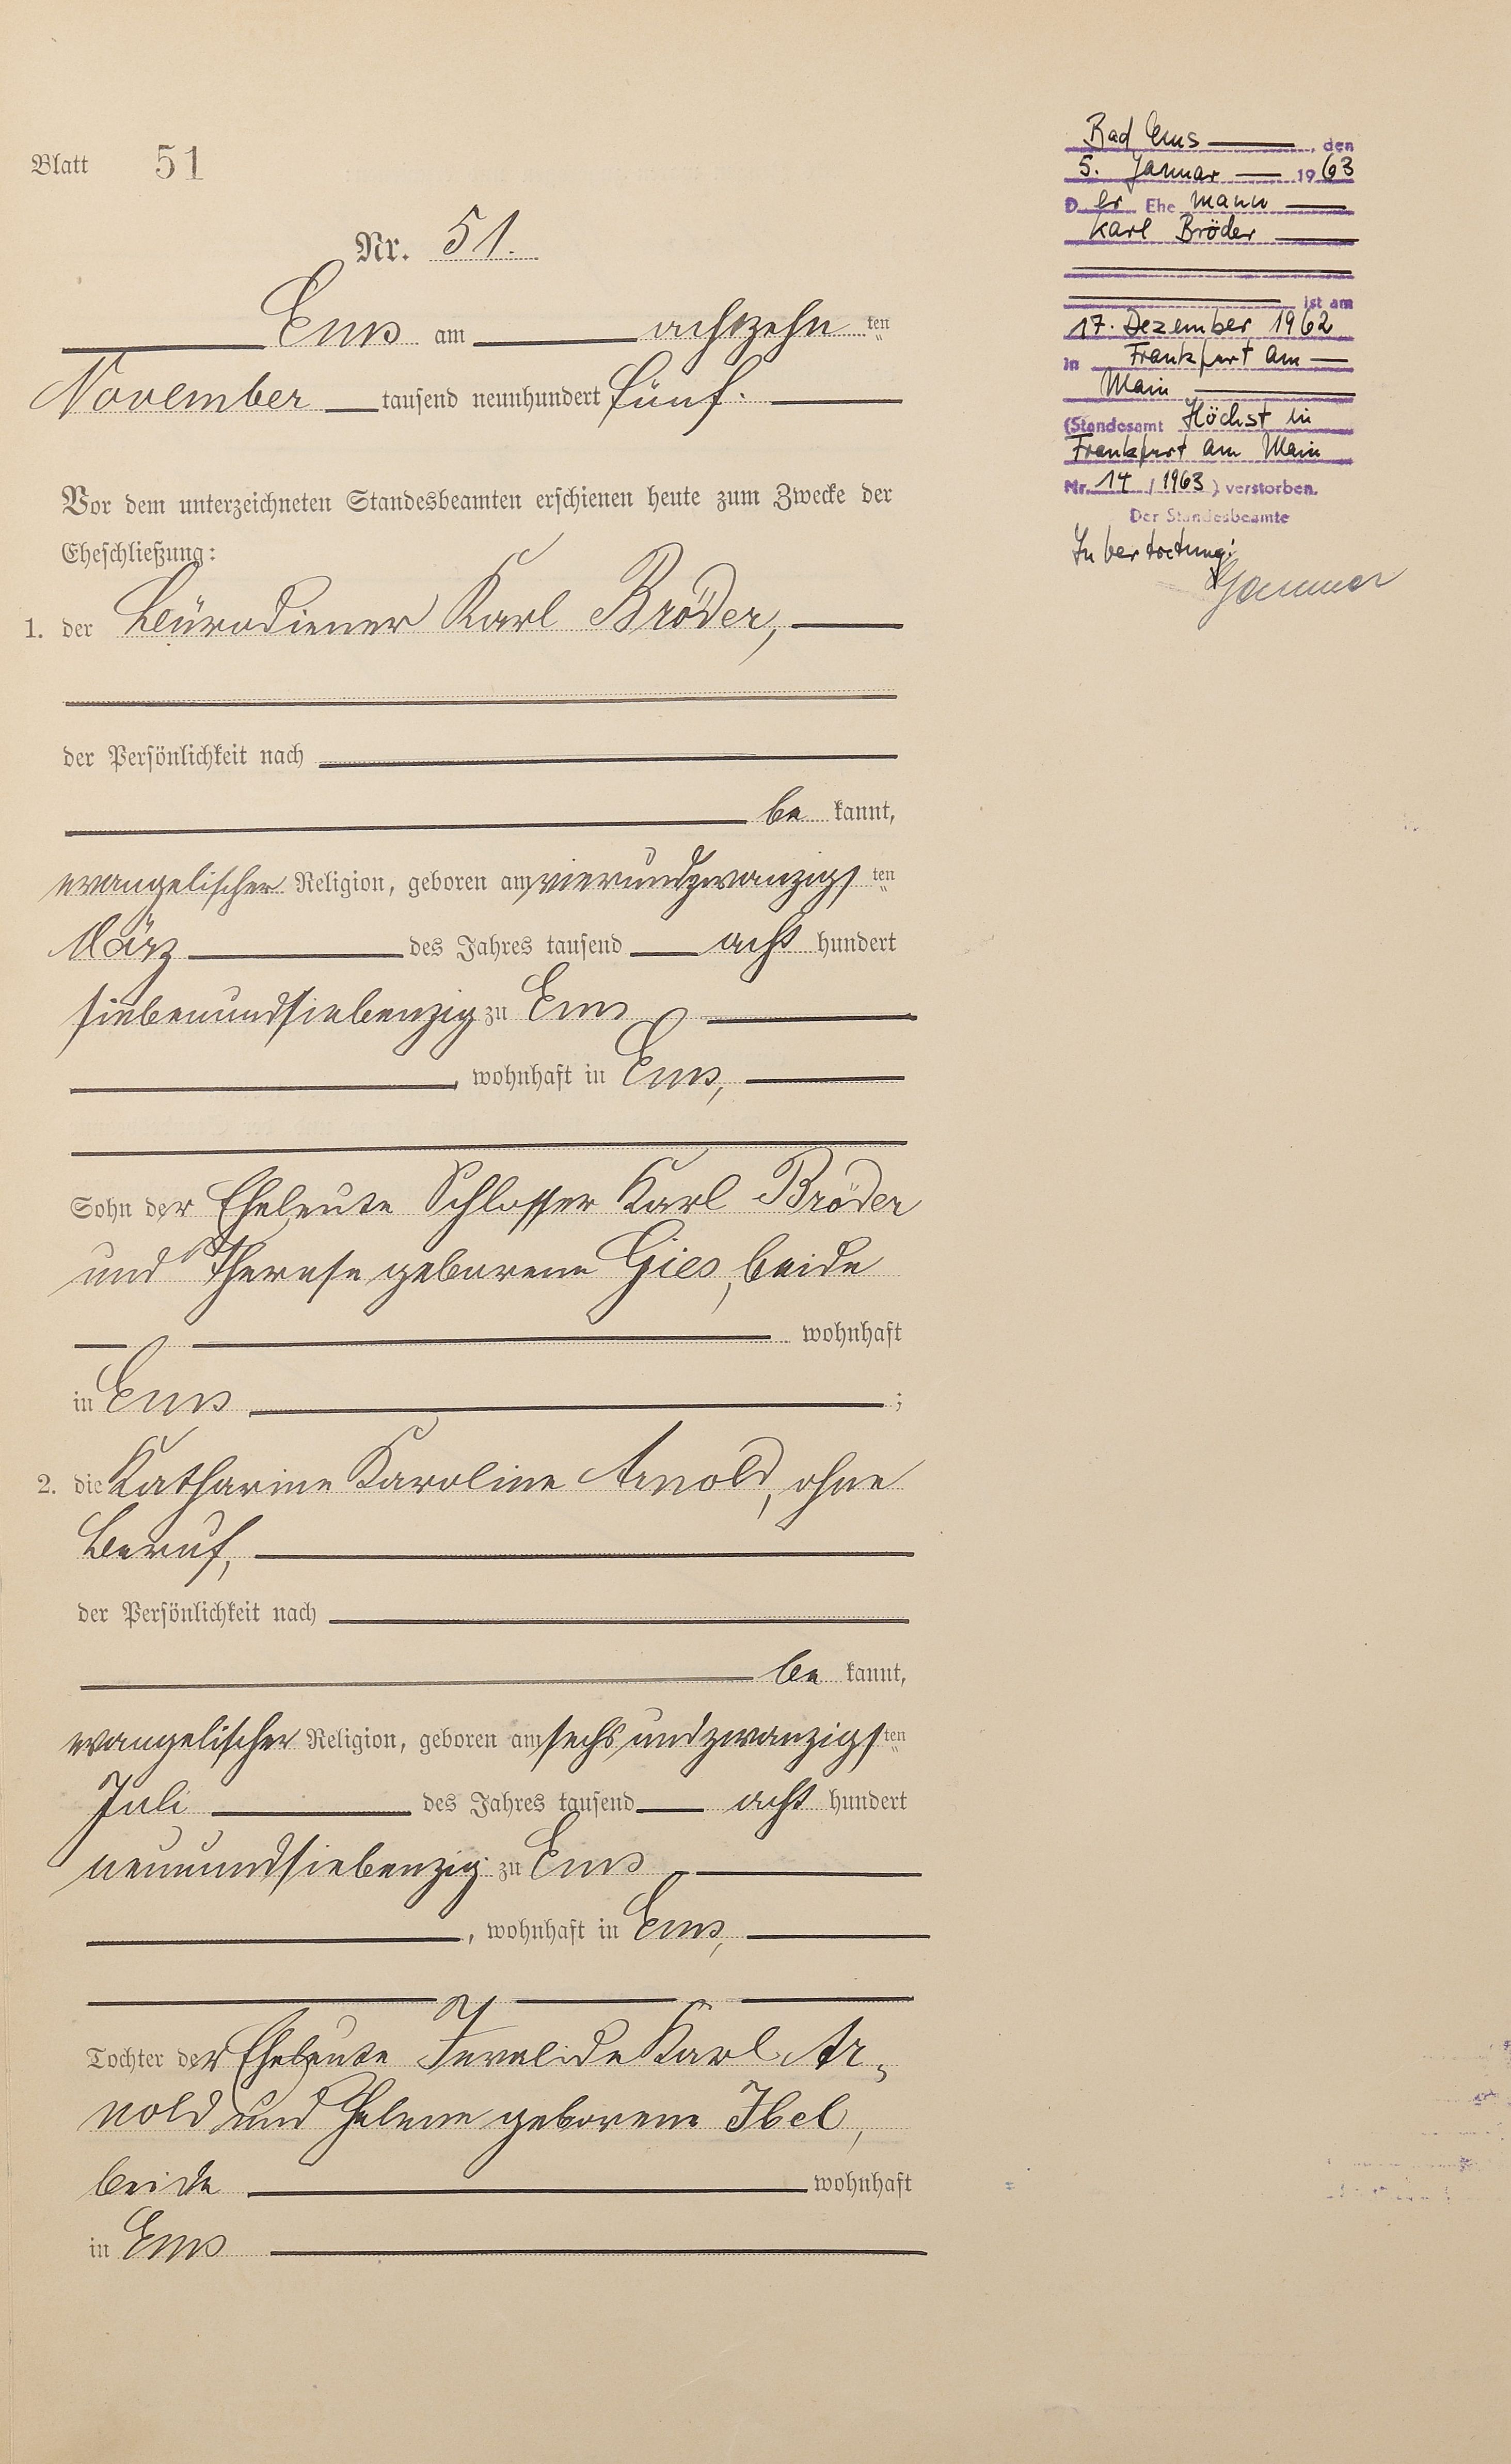 Blatt 51
Nr. 51.
Ems am achtzehn ten
November tausend neunhundert fünf.
Vor dem unterzeichneten Standesbeamten erschienen heute zum Zwecke der
Eheschließung:
1. der Bürodiener Karl Bröder,
der Persönlichkeit nach
be kannt,
evangelischer Religion, geboren am vierundzwanzigs ten
März des Jahres tausend acht hundert
siebenundsiebenzig zu Ems
, wohnhaft in Ems,
Sohn der Eheleute Schlosser Karl Bröder
und Therese geborene Gies, beide
wohnhaft
in Ems ;
2. die Katharine Karoline Arnold, ohne
Beruf,
der Persönlichkeit nach
be kannt,
evangelischer Religion, geboren am sechsundzwanzigs ten
Juli des Jahres tausend acht hundert
neunundsiebenzig zu Ems
, wohnhaft in Ems,
Tochter der Eheleute Invalide Karl Ar-
nold und Helene geborene Ibel,
beide wohnhaft
in Ems
Bad Ems , den
5. Januar 1963
Der Ehe mann
Karl Bröder
ist am
17. Dezember 1962
in Frankfurt am
Main
(Standesamt Höchst in
Frankfurt am Main
Nr. 14 / 1963 ) verstorben.
Der Standesbeamte
In Vertretung: